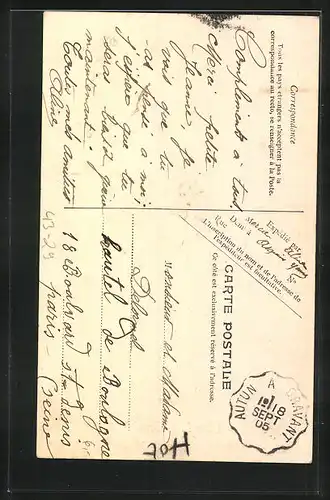 Correspondance
Tous les pays étrangers n'acceptent pas la
correspondance au recto, se renseigner à la Poste.
Complément à ta
chère petite
Jeanne Je
vois que tu
as pensé à moi
j'espère que tu
seras
maintenant
Toutes mes amitiés
Aline
Expédié par
Que
Dem à
N°
L'inscription du nom et de l'adresse de
l'expéditeur est facultative.
CARTE POSTALE
Ce côté est exclusivement réservé à l'adresse.
AUTUN A CRAVANT
18
SEPT
05
Monsieur et Madame
hautel de Boulogne
18 Boulevard St denis
paris
Seine
4329
HOT